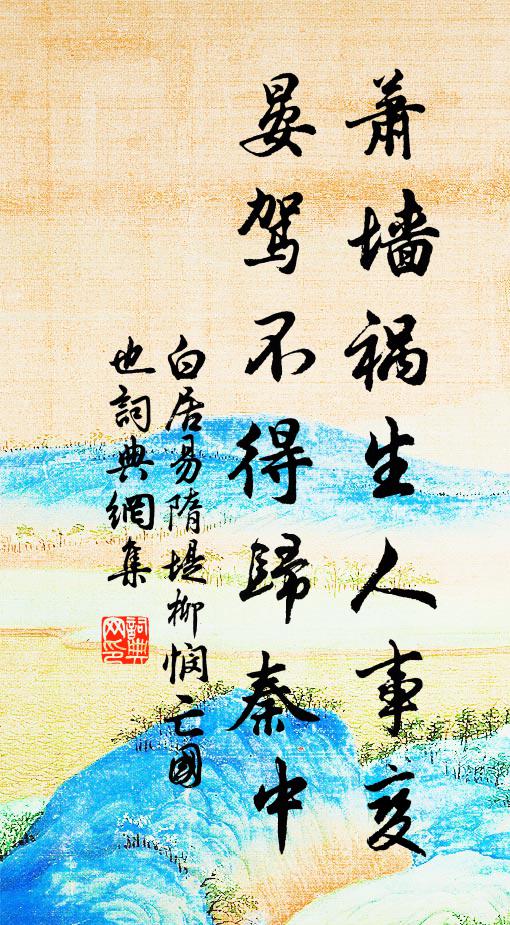 萧墙祸生人事变
晏驾不得歸秦中
白居易隋堤柳悯亡國
也詞典網集
詞典网印